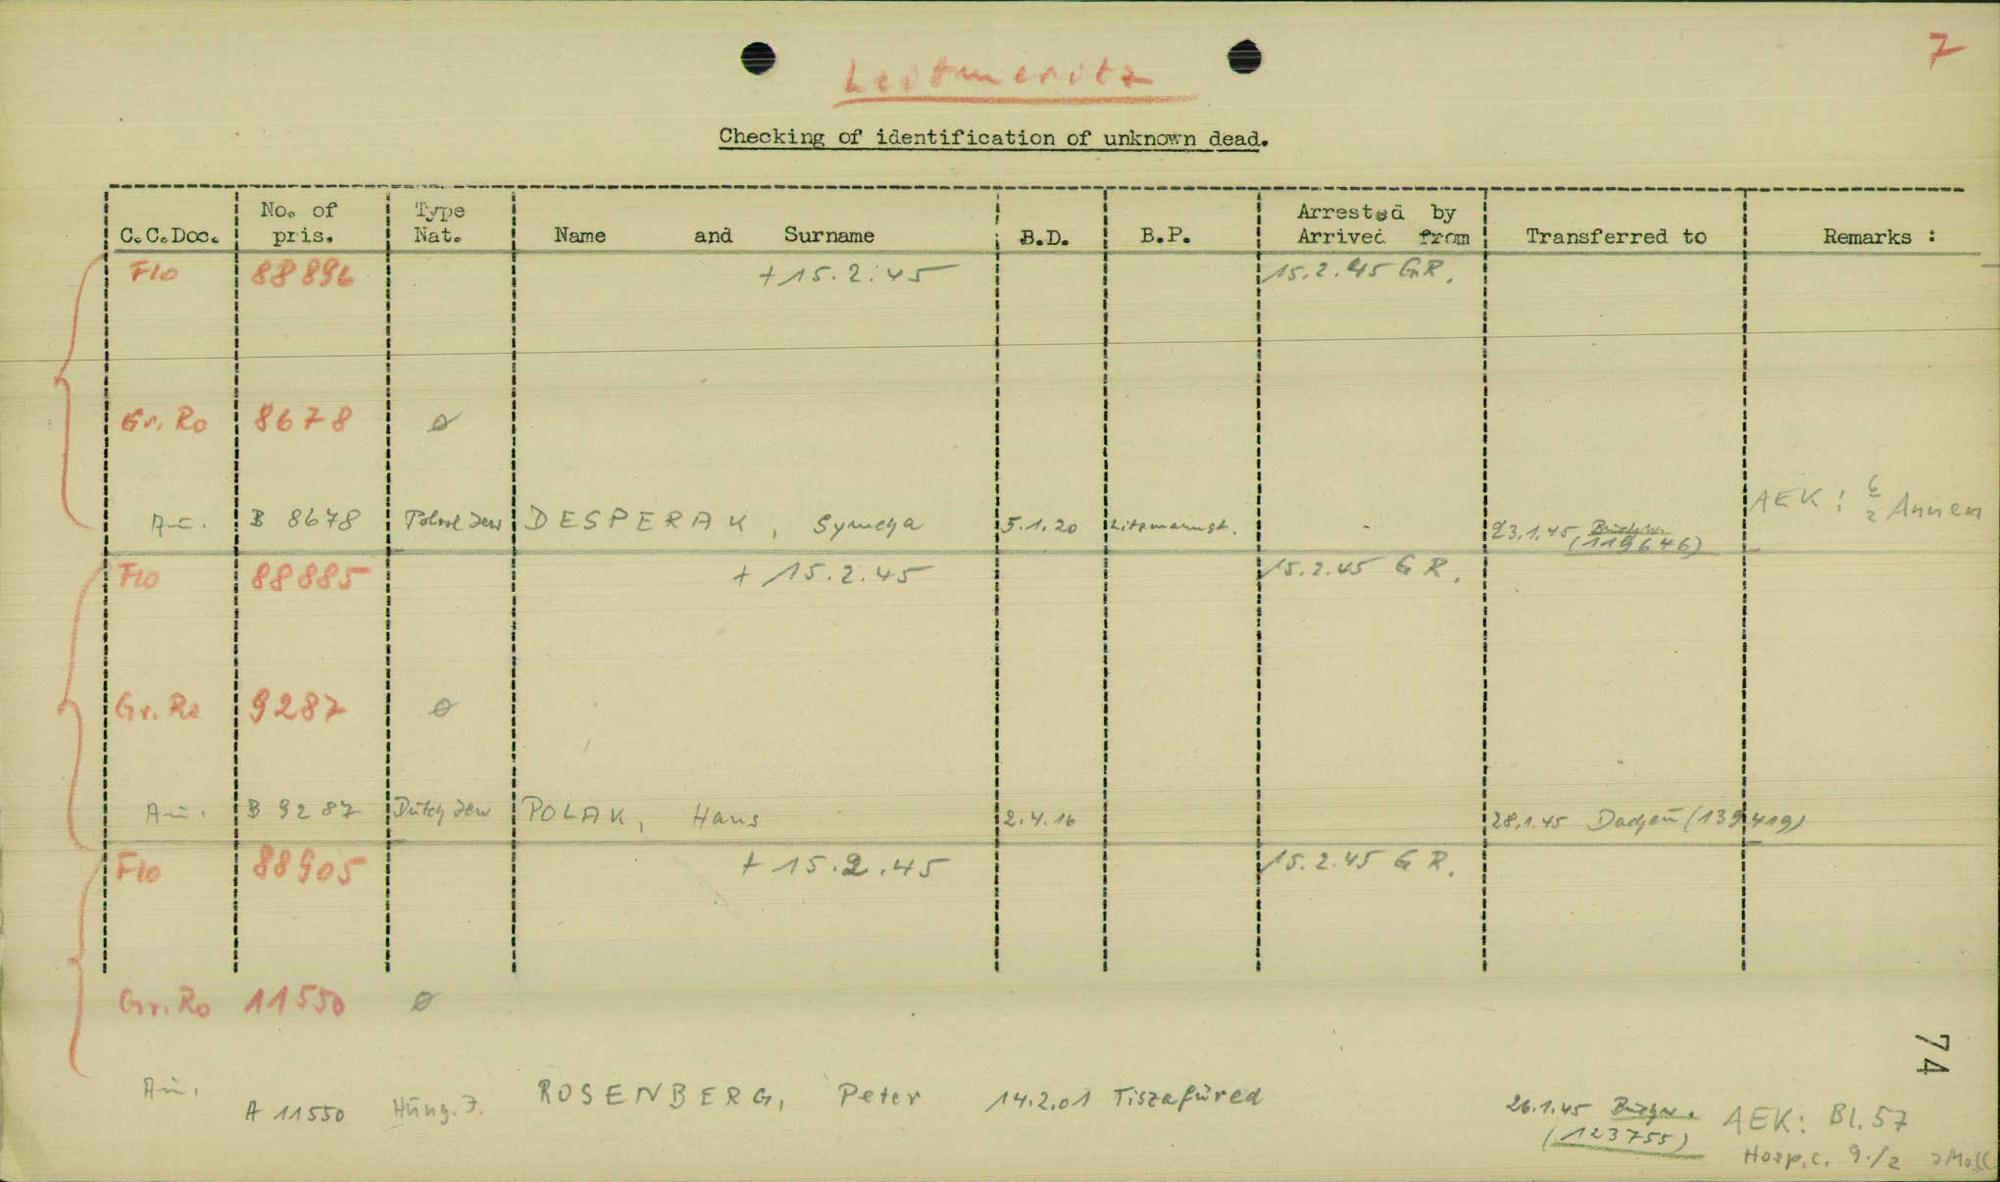 7
Leitmeritz
Checking of identification of unknown dead.
C.C.Doc. No. of pris. Type Nat. Name and Surname B.D. B.P. Arrested by Arrived from Transferred to Remarks :
Flo 88896 +15.2.45 15.2.45 GR.
Gr. Ro 8678 ø
Au. B 8678 Polish Jew DESPERAK, Symcha 5.1.20 Litzmannst. 23.1.45 Buchw. (119646) AEK: Annen
Flo 88885 + 15.2.45 15.2.45 G R.
Gr. Ro 9287 ø
Au. B 9287 Dutch Jew POLAK, Hans 2.4.16 28.1.45 Dachau (139419)
Flo 88905 + 15.2.45 15.2.45 G R.
Gr. Ro 11550 ø
Au. A 11550 Hung. J. ROSENBERG, Peter 14.2.01 Tiszafüred 26.1.45 Buchw. (123755) AEK: Bl. 57
Hosp. c. 9./2
74